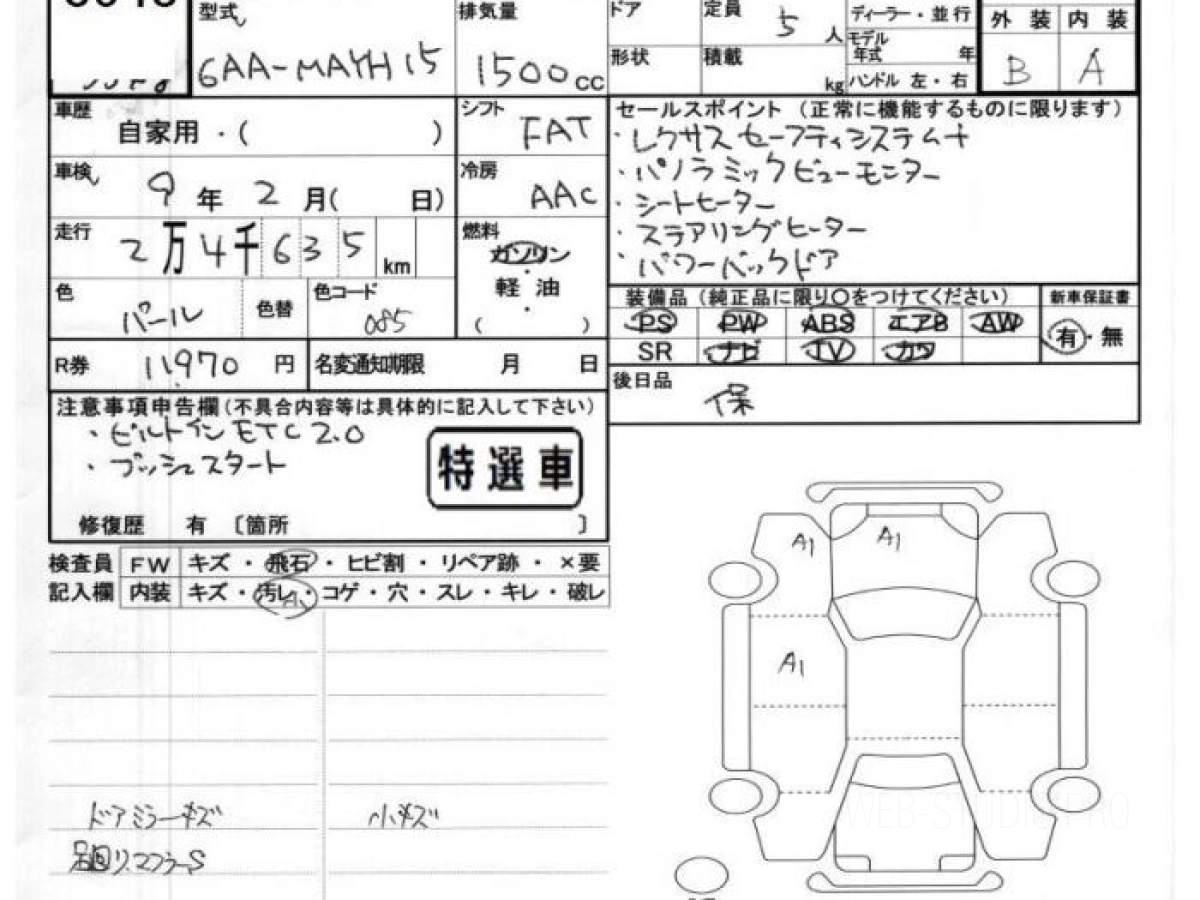 型式
6AA-MAYH15
排気量
1500cc
ドア
定員 5人
形状
積載 kg
ディーラー・並行
モデル年式 年
ハンドル 左・右
外装 内装
B A
車歴
自家用・( )
シフト
FAT
車検
9年2月( 日)
冷房
AAC
走行
2万4千635km
燃料
ガソリン
・
軽油
・
( )
色
パール
色替
色コード
085
R券 11,970円
名変通知期限 月 日
セールスポイント (正常に機能するものに限ります)
・レクサスセーフティシステム+
・パノラミックビューモニター
・シートヒーター
・ステアリングヒーター
・パワーバックドア
装備品(純正品に限り○をつけてください)
PS PW ABS エアB AW
SR ナビ TV カワ
新車保証書
有・無
後日品
保
注意事項申告欄(不具合内容等は具体的に記入して下さい)
・ビルトインETC2.0
・プッシュスタート
特選車
修復歴 有 〔箇所 〕
検査員 FW キズ・飛石・ヒビ割・リペア跡・×要
記入欄 内装 キズ・汚レ・コゲ・穴・スレ・キレ・破レ
A1 A1
A1
ドアミラーキズ
小キズ
足回り、マフラーS
WEB-STUDIO.PRO